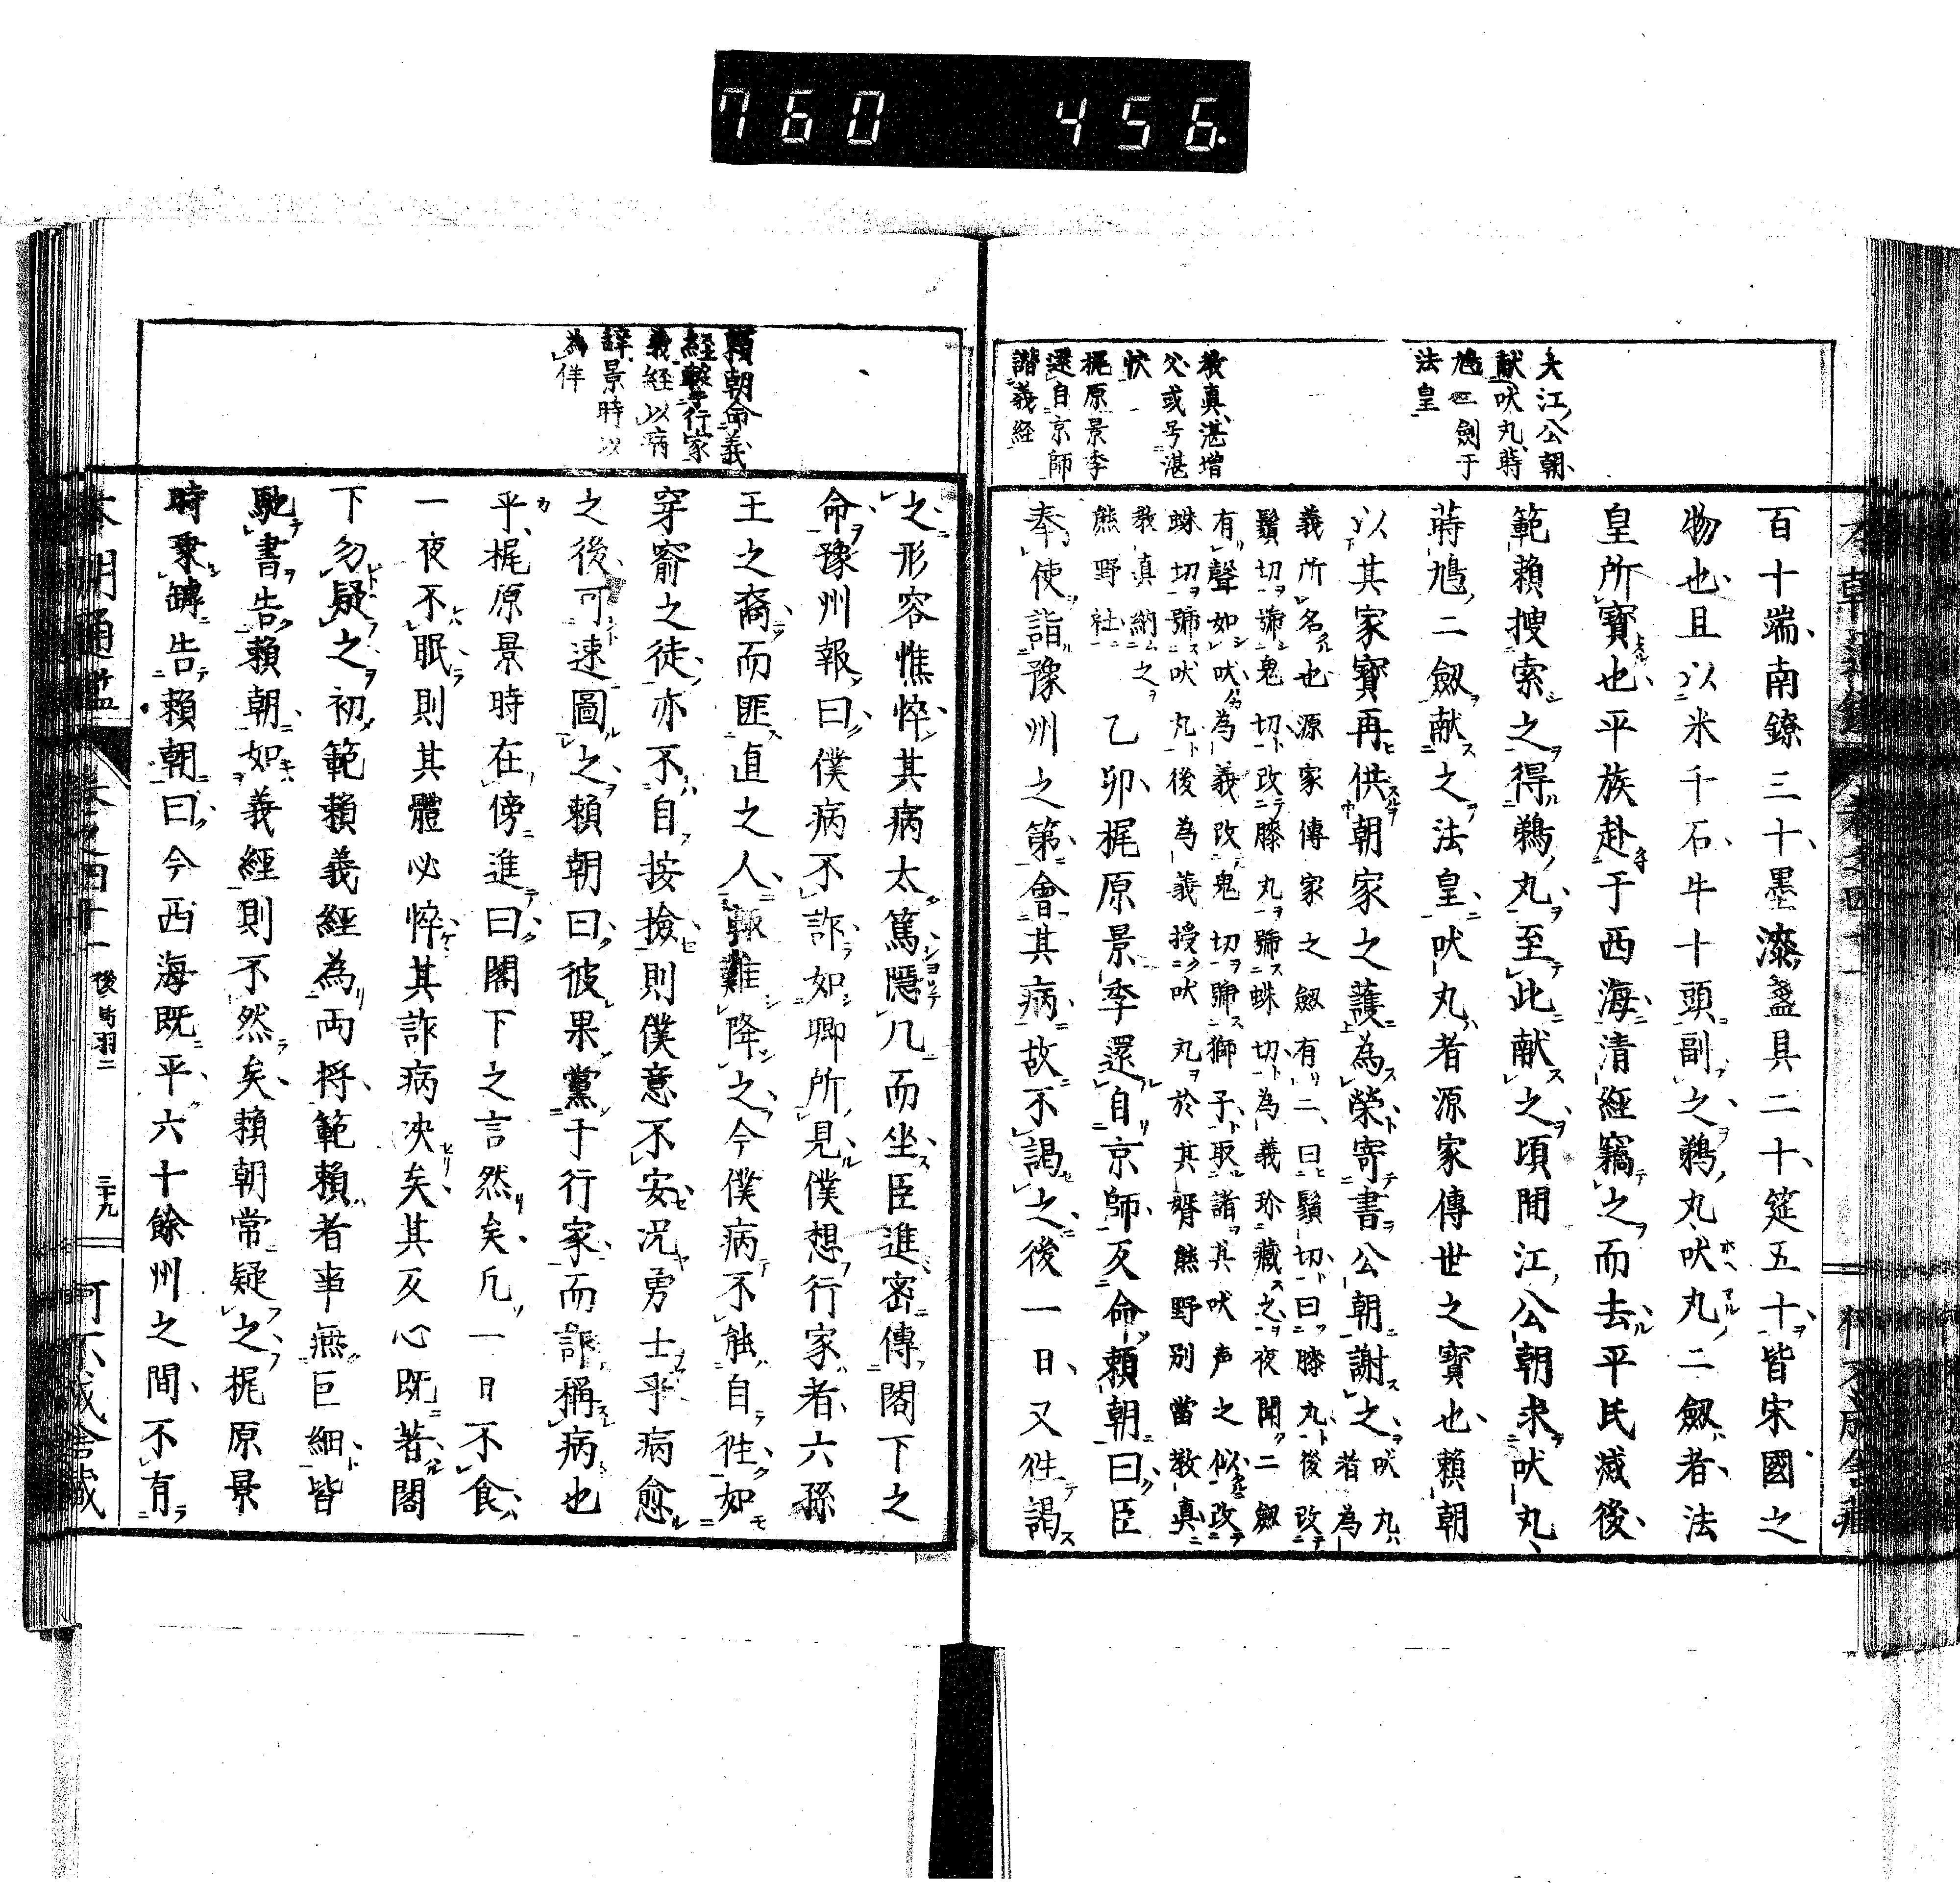 760 456.
大江公朝
献吠丸蒔
鳩二劍于
法皇
教眞湛増
父或号湛
快
梶原景季
還自京師
譛義経
百十端南鐐三十墨漆盞具二十筵五十皆宋國之
物也且以米千石牛十頭副之鵜丸吠丸二劔者法
皇所寶也平族赴于西海清經竊之而去平氏滅後
範賴捜索之得鵜丸至此献之頃間江公朝求吠丸
蒔鳩二劔献之法皇吠丸者源家傳世之寶也賴朝
以其家寶再供朝家之護為榮寄書公朝謝之
吠丸者為
義所名也源家傳家之劔有二曰鬚切曰膝丸後改
鬚切號鬼切改膝丸號蛛切為義珍藏之夜聞二劔
有聲如吠為義改鬼切號獅子取諸其吠声之似改
蛛切號吠丸後為義授吠丸於其婿熊野別當教眞
教眞納之
熊野社
乙卯梶原景季還自京師反命賴朝曰臣
奉使詣豫州之第會其病故不謁之後一日又徃謁
之形容憔悴其病太篤隱几而坐臣進密傳閣下之
命豫州報曰僕病不詐如卿所見僕想行家者六孫
王之裔而匪直之人輙難降之今僕病不能自徃如
穿窬之徒亦不自按撿則僕意不安况勇士乎病愈
之後可速圖之賴朝曰彼果黨于行家而詐稱病也
乎梶原景時在傍進曰閣下之言然矣凡一日不食
一夜不眠則其體必悴其詐病决矣其反心既著閣
下勿疑之初範賴義經為両将範賴者事無巨細皆
馳書告賴朝如義經則不然矣賴朝常疑之梶原景
時乗罅告賴朝曰今西海既平六十餘州之間不有
賴朝命義
経撃行家
義経以病
辞景時以
為佯
本朝通鑑 卷之四十一 後鳥羽二 三十九